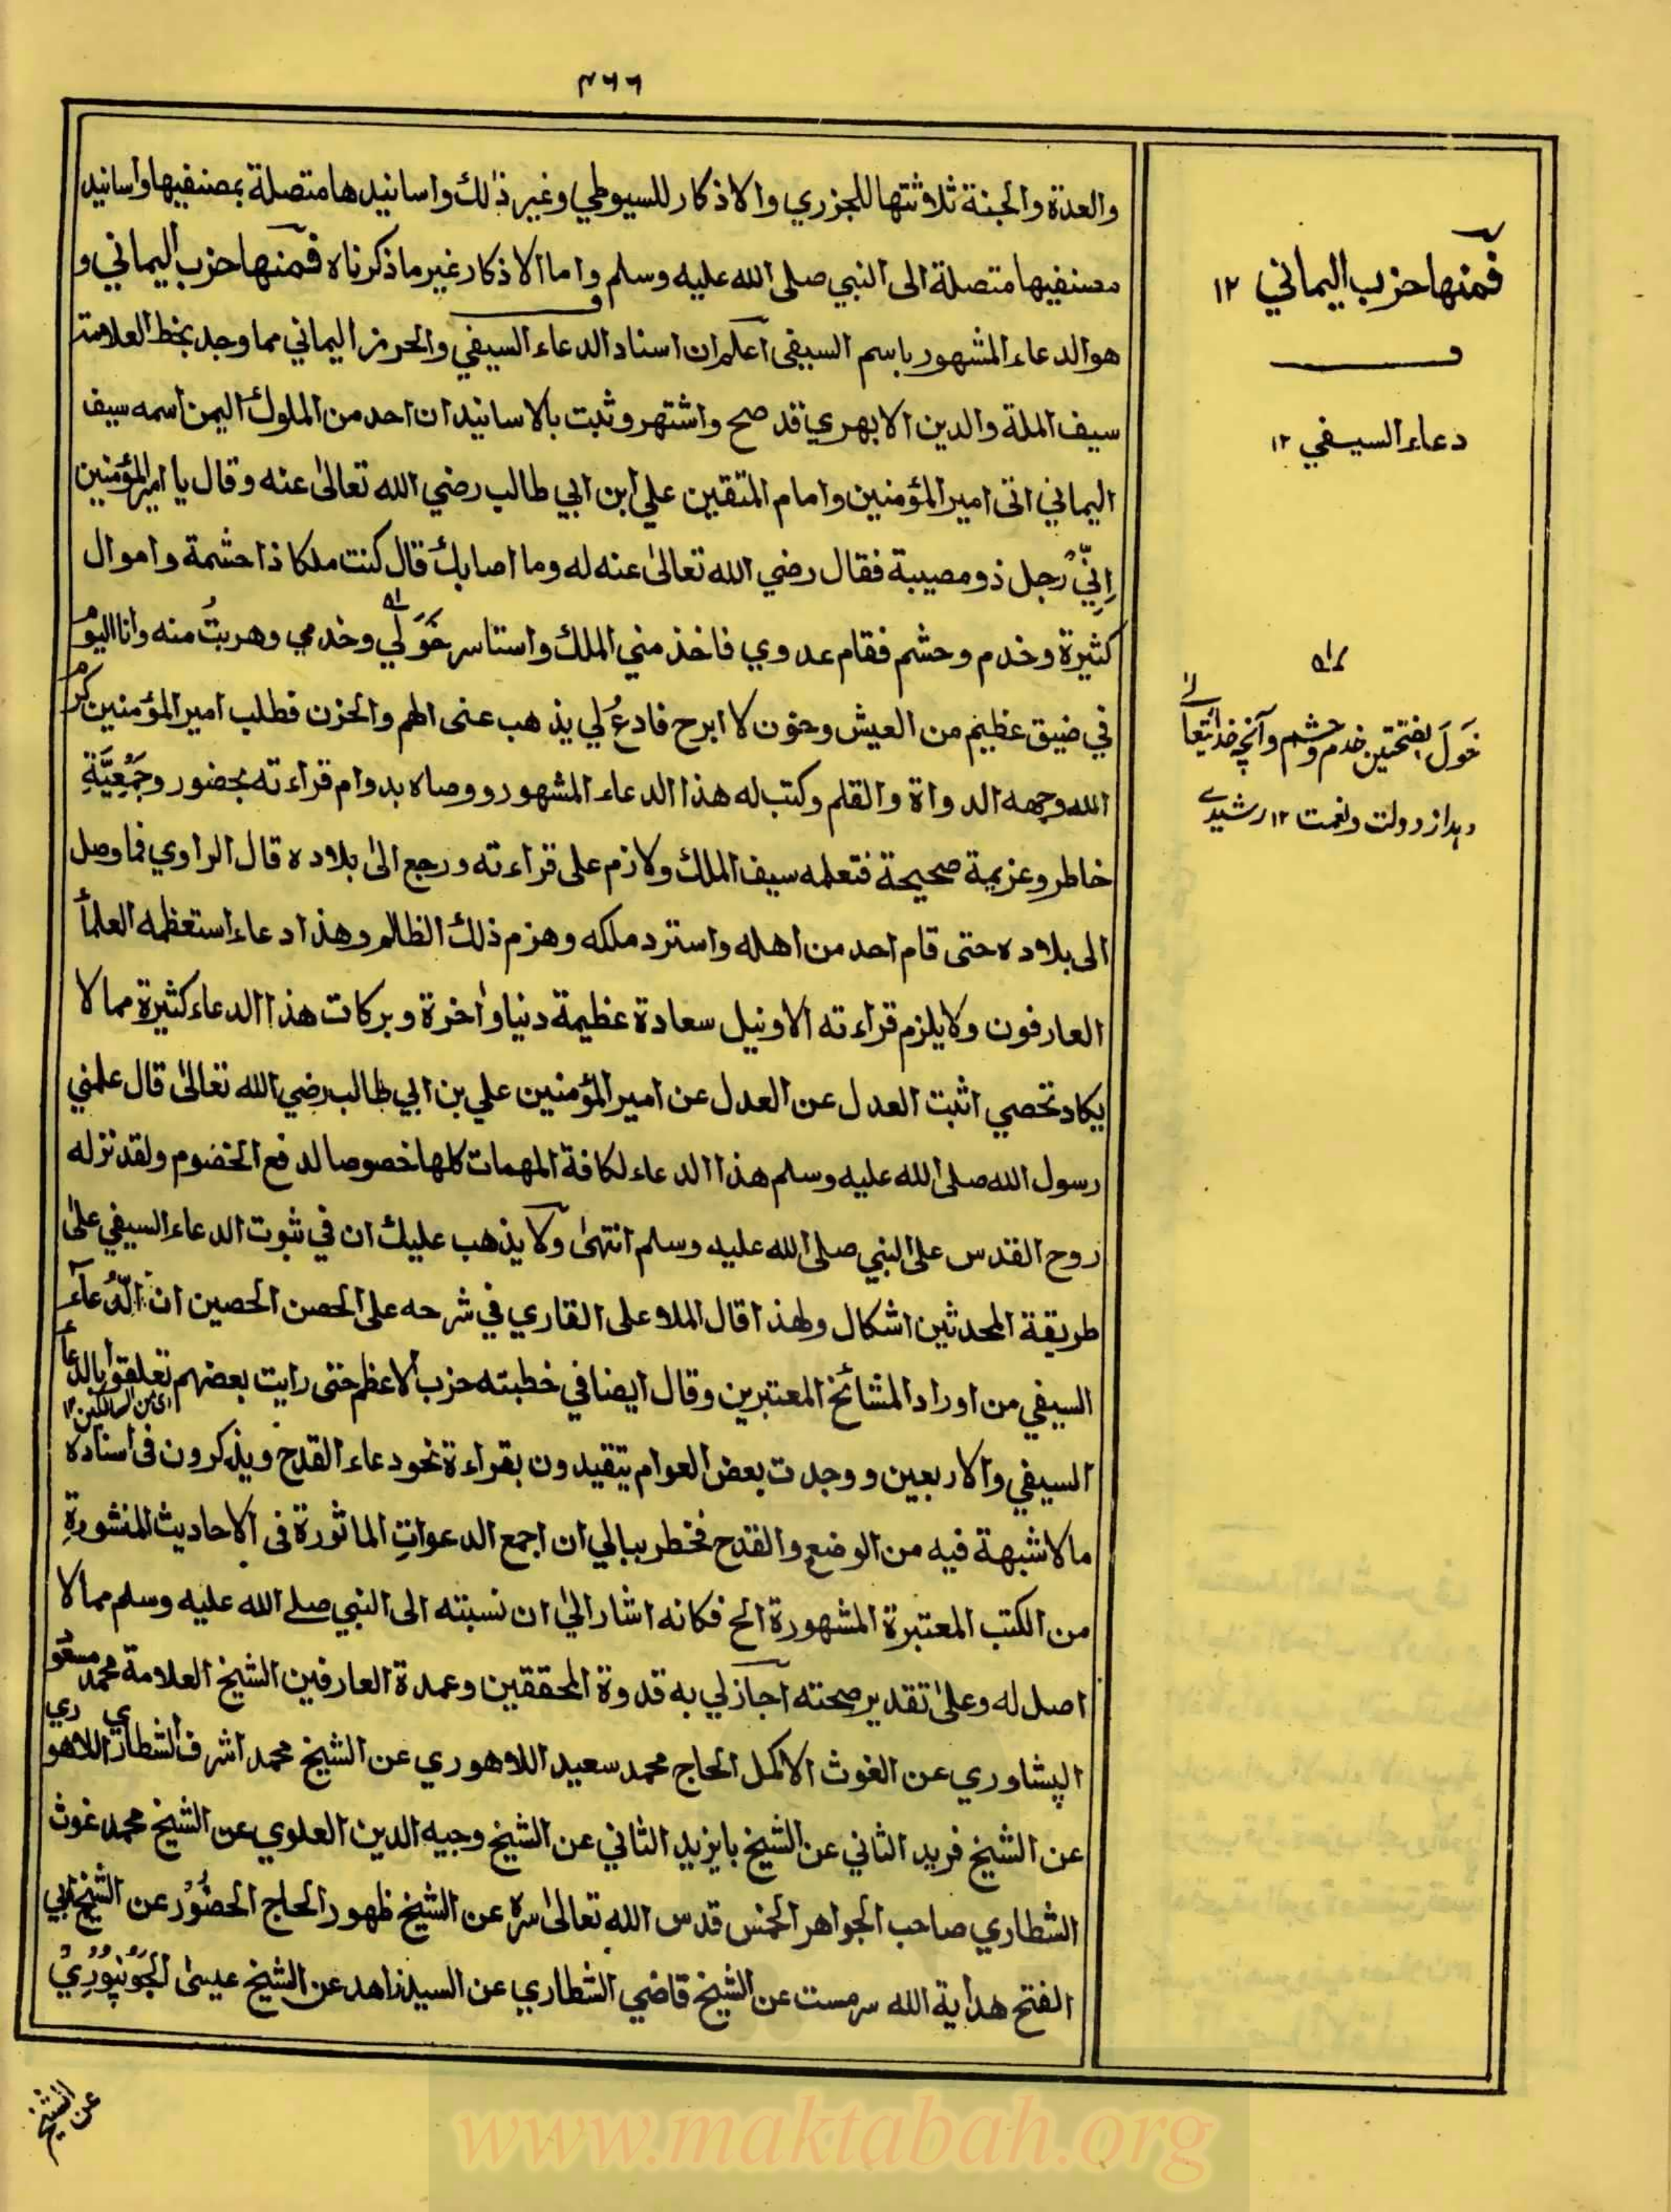 ۴۶۶
والعدة والجنة ثلاثتها للجزري والاذكار للسيوطي وغير ذلك واسانيدها متصلة بمصنفيها واسانيد
مصنفيها متصلة الى النبي صلى الله عليه وسلم واما الاذكار غير ما ذكرناه فمنها حزب اليماني و
هو الدعاء المشهور باسم السيفي اعلم ان اسناد الدعاء السيفي والحرز اليماني مما وجد بخط العلامة
سيف الملة والدين الابهري قد صح واشتهر وثبت بالاسانيد ان احد من الملوك اليمن اسمه سيف
اليماني اتى امير المؤمنين وامام المتقين علي ابن ابي طالب رضي الله تعالىٰ عنه وقال يا امير المؤمنين
اِنِّي رجل ذو مصيبة فقال رضي الله تعالىٰ عنه له وما اصابك قال كنت ملكا ذا حشمة واموال
كثيرة وخدم وحشم فقام عدوي فاخذ مني الملك واستاسر خَوَلي وخدمي وهربتُ منه وانا اليوم
في ضيق عظيم من العيش وخوف لا ابرح فادعُ لي يذهب عنى الهم والحزن فطلب امير المؤمنين كرم
الله وجهه الدواة والقلم وكتب له هذا الدعاء المشهور ووصاه بدوام قراءته بحضور وجَمْعِيَّةِ
خاطر وعزيمة صحيحة فتعلمه سيف الملك ولازم على قراءته ورجع الىٰ بلاده قال الراوي فما وصل
الى بلاده حتى قام احد من اهله واسترد ملكه وهزم ذلك الظالم وهذا دعاء استعظمه العلمأ
العارفون ولا يلزم قراءته الا ونيل سعادة عظيمة دنيا واٰخرة وبركات هذا الدعاء كثيرة مما لا
يكاد تحصي اثبت العدل عن العدل عن امير المؤمنين علي بن ابي طالب رضي الله تعالىٰ قال علمني
رسول الله صلى الله عليه وسلم هذا الدعاء لكافة المهمات كلها خصوصا لدفع الخضوم ولقد نزله
روح القدس على النبي صلى الله عليه وسلم انتهىٰ ولا يذهب عليك ان في ثبوت الدعاء السيفي علىٰ
طريقة المحدثين اشكال ولهذا قال الملا على القاري في شرحه على الحصن الحصين ان الدُّعآء
السيفي من اوراد المشائخ المعتبرين وقال ايضا في خطبته حزب الاعظم حتى رايت بعضهم تعلقوا بالدعاء
السيفي والاربعين ووجدت بعض العوام يتقيدون بقراءة نحو دعاء القدح ويذكرون فى اسناده
ما لا شبهة فيه من الوضع والقدح فخطر ببالي ان اجمع الدعواتِ الماثورة فى الاحاديث المنشورةِ
من الكتب المعتبرة المشهورة الخ فكانه اشار الىٰ ان نسبته الى النبي صلے الله عليه وسلم مما لا
اصل له وعلىٰ تقدير صحته اجاز لي به قدوة المحققين وعمدة العارفين الشيخ العلامة محمد مسعود
الپشاوري عن الغوث الاكمل الحاج محمد سعيد اللاهوري عن الشيخ محمد اشرف الشطاري اللاهوري
عن الشيخ فريد الثاني عن الشيخ بايزيد الثاني عن الشيخ وجيه الدين العلوي عن الشيخ محمد غوث
الشطاري صاحب الجواهر الخمس قدس الله تعالىٰ سره عن الشيخ ظهور الحاج الحضُوْر عن الشيخ ابي
الفتح هداية الله سرمست عن الشيخ قاضي الشطاري عن السيد زاهد عن الشيخ عيسىٰ الجَوْنپُوْرِيْ
عن الشيخ
فمنها حزب اليماني ۱۲
دعاء السيفي ۱۲
خَوَلَ بفتحتين خدم وحشم وآنچه خدایتعالے
دہد از دولت ونعمت ۱۲ رشیدے
www.maktabah.org